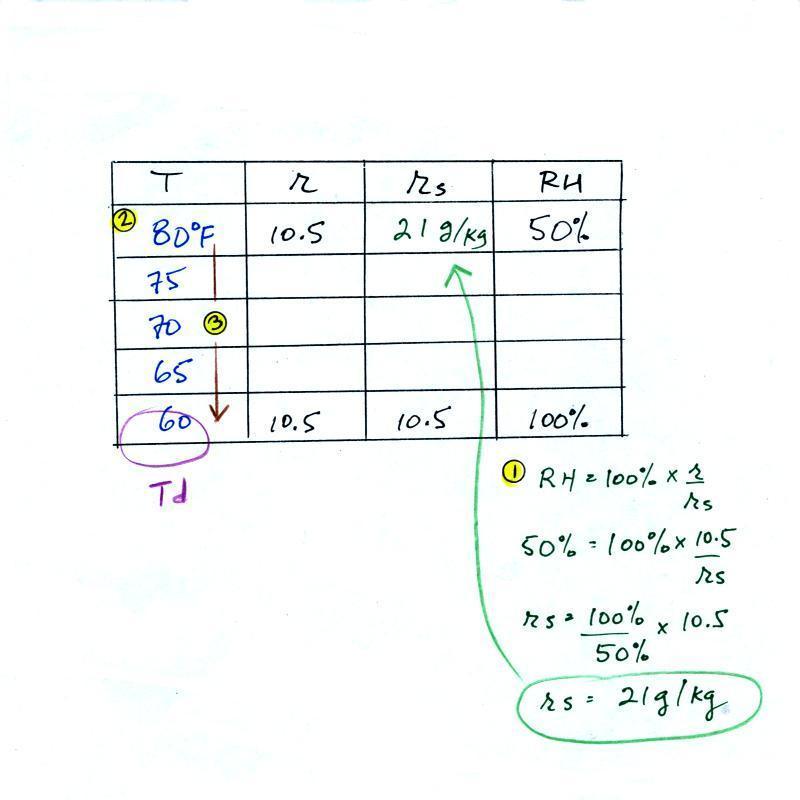 T r rs RH
② 80°F 10.5 21 g/kg 50%
75
70 ③
65
60 10.5 10.5 100%
Td
① RH = 100% × r/rs
50% = 100% × 10.5/rs
rs = 100%/50% × 10.5
rs = 21g/kg